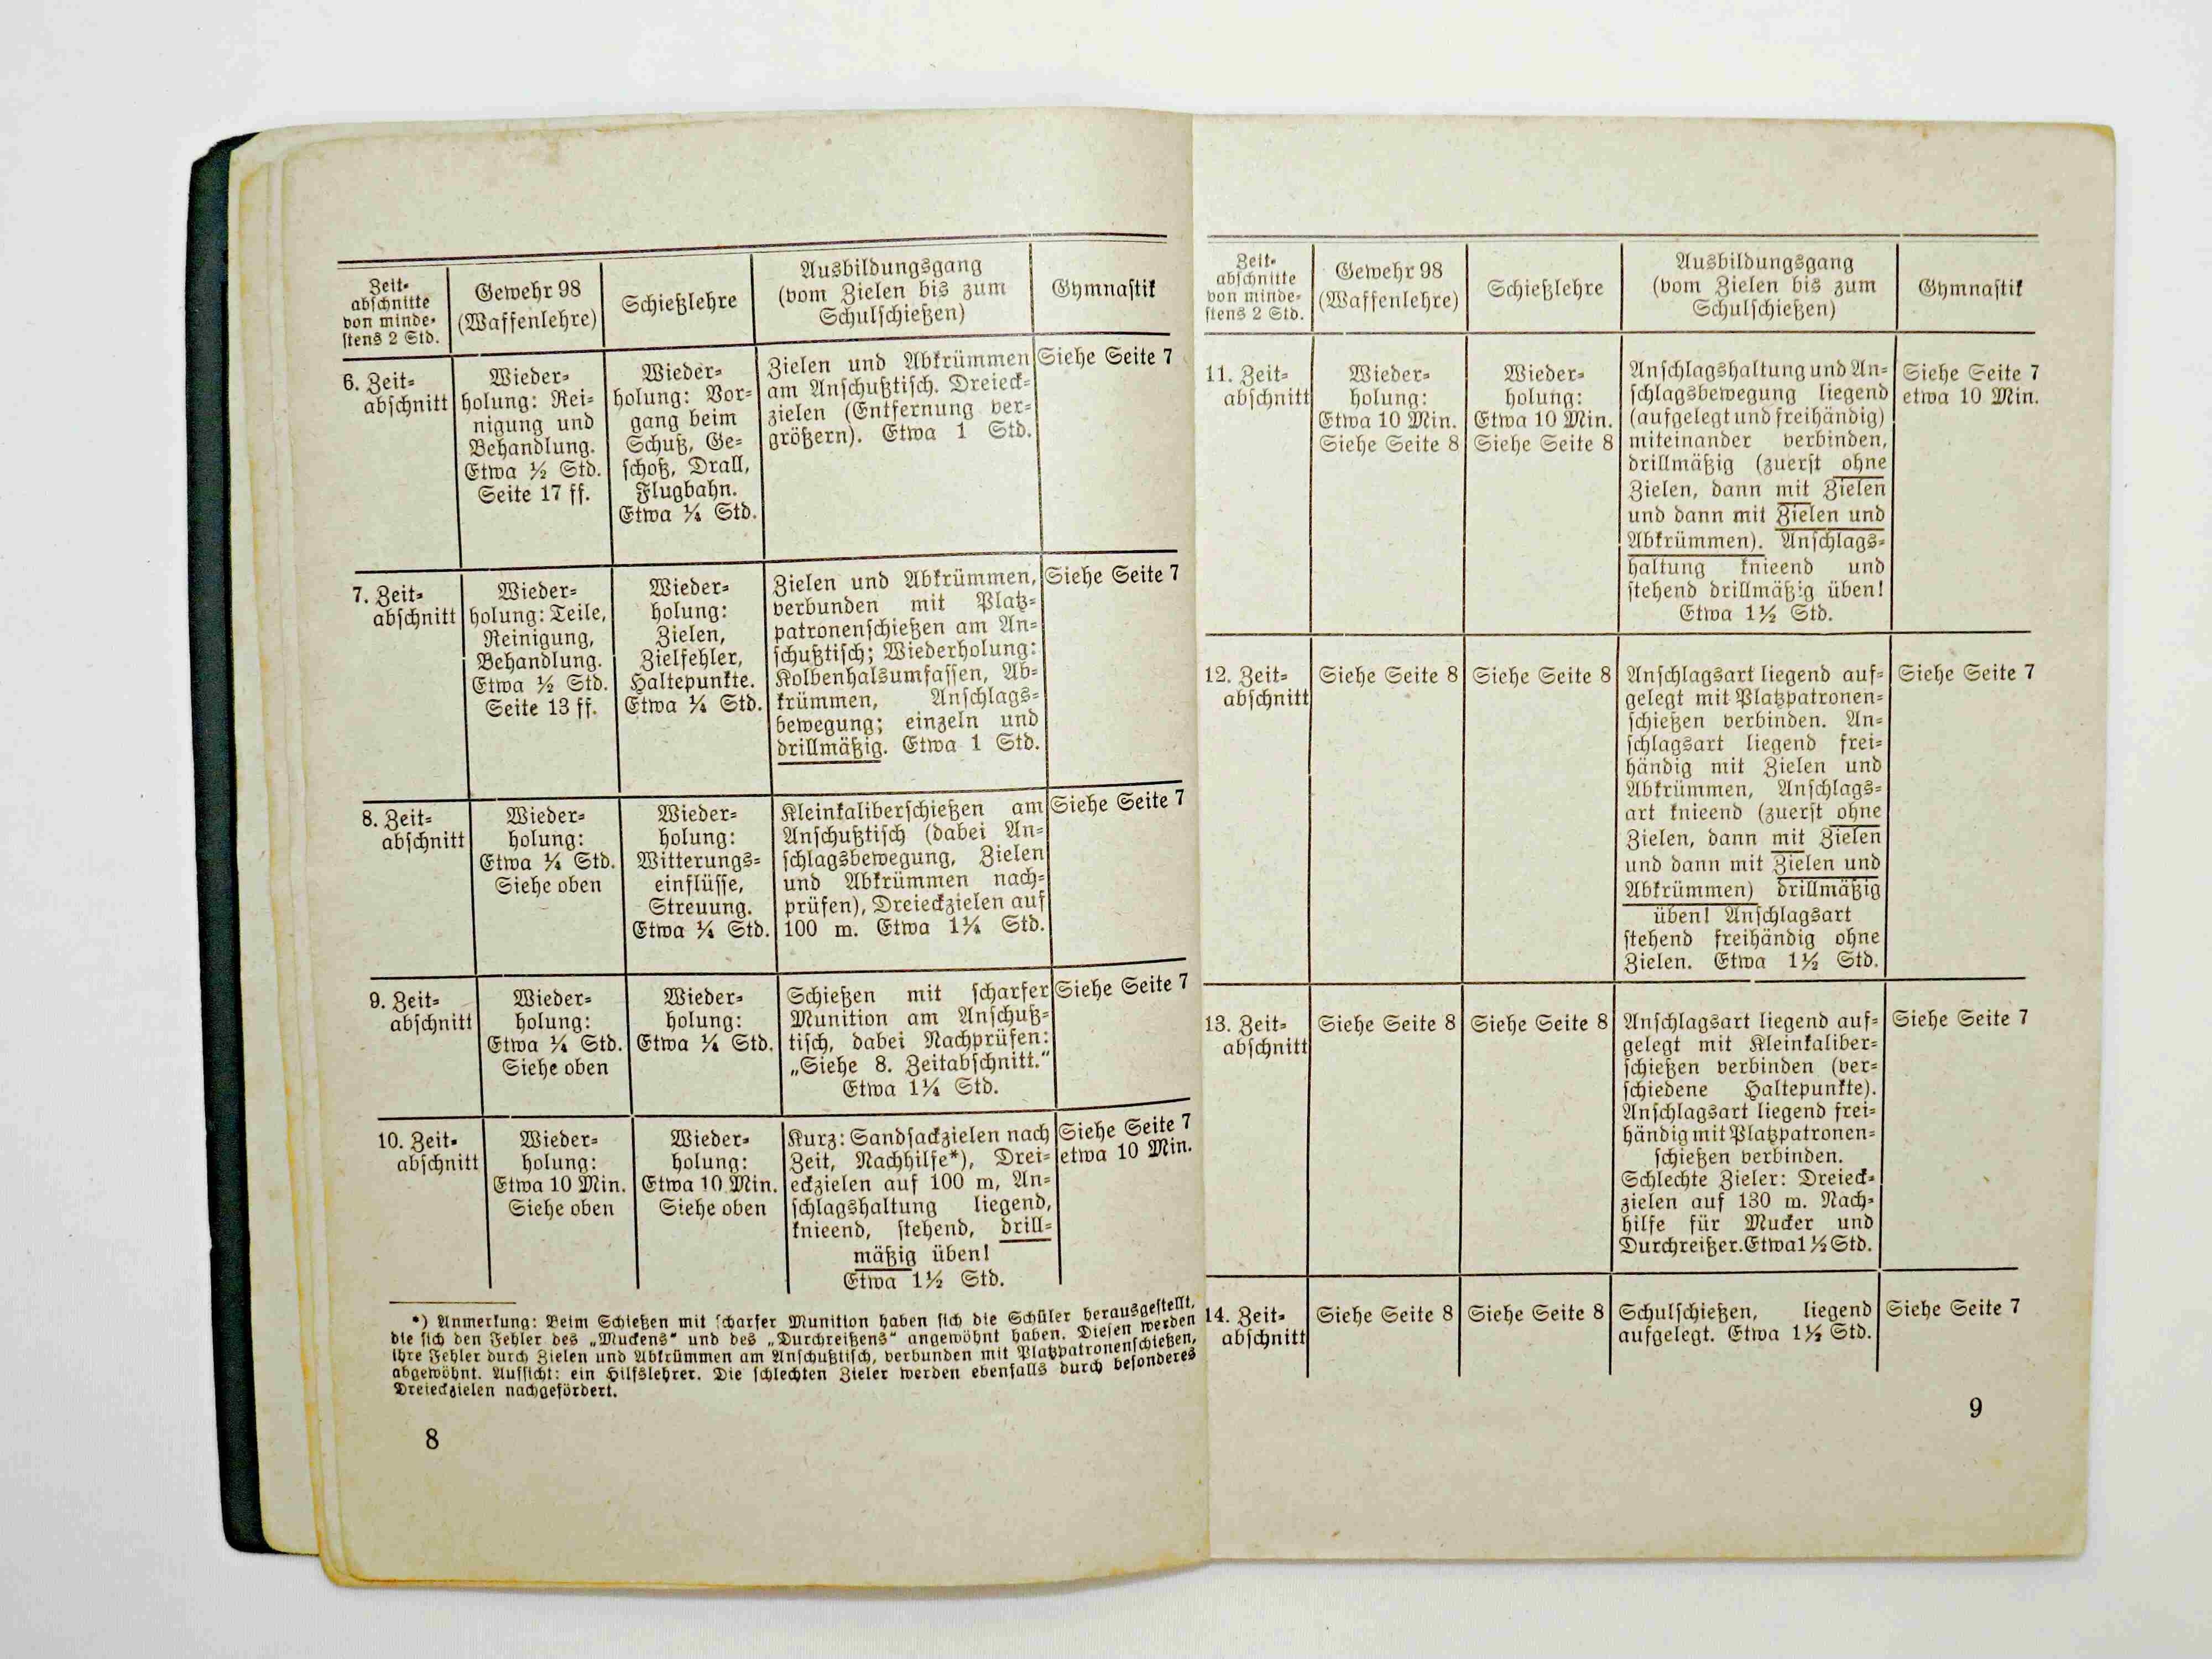 Zeit-
abschnitte
von minde-
stens 2 Std.
Gewehr 98
(Waffenlehre)
Schießlehre
Ausbildungsgang
(vom Zielen bis zum
Schulschießen)
Gymnastik
6. Zeit-
abschnitt
Wieder-
holung: Rei-
nigung und
Behandlung.
Etwa ½ Std.
Seite 17 ff.
Wieder-
holung: Vor-
gang beim
Schuß, Ge-
schoß, Drall,
Flugbahn.
Etwa ¼ Std.
Zielen und Abkrümmen
am Anschußtisch. Dreieck-
zielen (Entfernung ver-
größern). Etwa 1 Std.
Siehe Seite 7
7. Zeit-
abschnitt
Wieder-
holung: Teile,
Reinigung,
Behandlung.
Etwa ½ Std.
Seite 13 ff.
Wieder-
holung:
Zielen,
Zielfehler,
Haltepunkte.
Etwa ¼ Std.
Zielen und Abkrümmen,
verbunden mit Platz-
patronenschießen am An-
schußtisch; Wiederholung:
Kolbenhalsumfassen, Ab-
krümmen, Anschlags-
bewegung; einzeln und
drillmäßig. Etwa 1 Std.
Siehe Seite 7
8. Zeit-
abschnitt
Wieder-
holung:
Etwa ¼ Std.
Siehe oben
Wieder-
holung:
Witterungs-
einflüsse,
Streuung.
Etwa ¼ Std.
Kleinkaliberschießen am
Anschußtisch (dabei An-
schlagsbewegung, Zielen
und Abkrümmen nach-
prüfen), Dreieckzielen auf
100 m. Etwa 1¼ Std.
Siehe Seite 7
9. Zeit-
abschnitt
Wieder-
holung:
Etwa ¼ Std.
Siehe oben
Wieder-
holung:
Etwa ¼ Std.
Schießen mit scharfer
Munition am Anschuß-
tisch, dabei Nachprüfen:
„Siehe 8. Zeitabschnitt.“
Etwa 1¼ Std.
Siehe Seite 7
10. Zeit-
abschnitt
Wieder-
holung:
Etwa 10 Min.
Siehe oben
Wieder-
holung:
Etwa 10 Min.
Siehe oben
Kurz: Sandsackzielen nach
Zeit, Nachhilfe*), Drei-
eckzielen auf 100 m, An-
schlagshaltung liegend,
knieend, stehend, drill-
mäßig üben!
Etwa 1½ Std.
Siehe Seite 7
etwa 10 Min.
*) Anmerkung: Beim Schießen mit scharfer Munition haben sich die Schüler herausgestellt,
die sich den Fehler des „Muckens“ und des „Durchreißens“ angewöhnt haben. Diesen werden
ihre Fehler durch Zielen und Abkrümmen am Anschußtisch, verbunden mit Platzpatronenschießen,
abgewöhnt. Aufsicht: ein Hilfslehrer. Die schlechten Zieler werden ebenfalls durch besonderes
Dreieckzielen nachgefördert.
8
Zeit-
abschnitte
von minde-
stens 2 Std.
Gewehr 98
(Waffenlehre)
Schießlehre
Ausbildungsgang
(vom Zielen bis zum
Schulschießen)
Gymnastik
11. Zeit-
abschnitt
Wieder-
holung:
Etwa 10 Min.
Siehe Seite 8
Wieder-
holung:
Etwa 10 Min.
Siehe Seite 8
Anschlagshaltung und An-
schlagsbewegung liegend
(aufgelegt und freihändig)
miteinander verbinden,
drillmäßig (zuerst ohne
Zielen, dann mit Zielen
und dann mit Zielen und
Abkrümmen). Anschlags-
haltung knieend und
stehend drillmäßig üben!
Etwa 1½ Std.
Siehe Seite 7
etwa 10 Min.
12. Zeit-
abschnitt
Siehe Seite 8
Siehe Seite 8
Anschlagsart liegend auf-
gelegt mit Platzpatronen-
schießen verbinden. An-
schlagsart liegend frei-
händig mit Zielen und
Abkrümmen, Anschlags-
art knieend (zuerst ohne
Zielen, dann mit Zielen
und dann mit Zielen und
Abkrümmen) drillmäßig
üben! Anschlagsart
stehend freihändig ohne
Zielen. Etwa 1½ Std.
Siehe Seite 7
13. Zeit-
abschnitt
Siehe Seite 8
Siehe Seite 8
Anschlagsart liegend auf-
gelegt mit Kleinkaliber-
schießen verbinden (ver-
schiedene Haltepunkte).
Anschlagsart liegend frei-
händig mit Platzpatronen-
schießen verbinden.
Schlechte Zieler: Dreieck-
zielen auf 130 m. Nach-
hilfe für Mucker und
Durchreißer. Etwa 1½ Std.
Siehe Seite 7
14. Zeit-
abschnitt
Siehe Seite 8
Siehe Seite 8
Schulschießen, liegend
aufgelegt. Etwa 1½ Std.
Siehe Seite 7
9